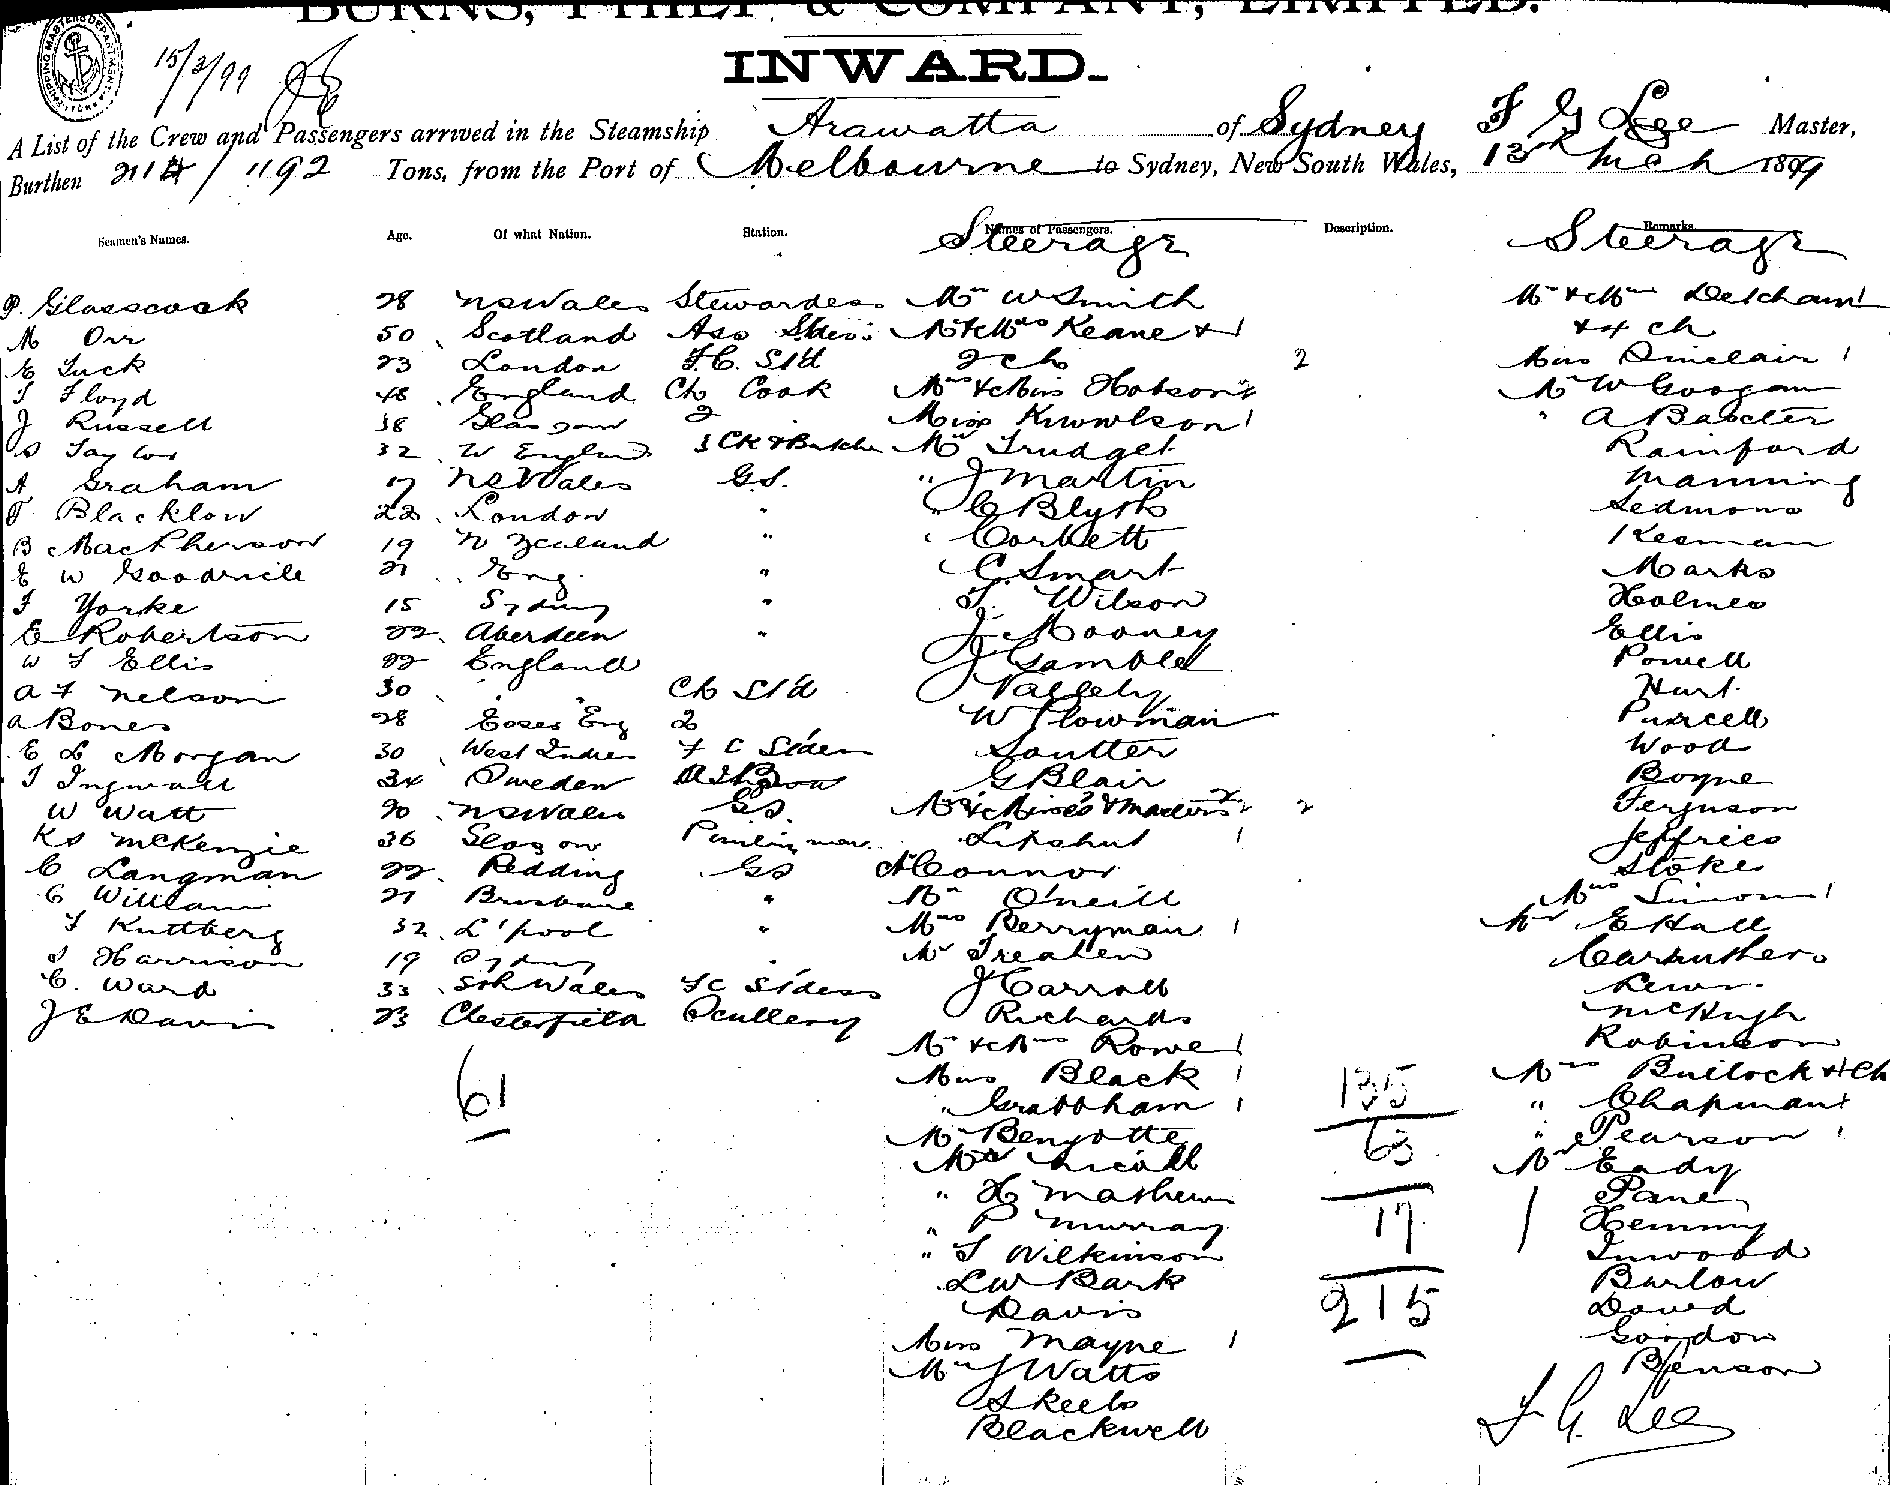 BURNS, PHILP & COMPANY, LIMITED.
INWARD.
15/3/99
A List of the Crew and Passengers arrived in the Steamship Arawatta of Sydney F G Lee Master,
Burthen 2114 / 1192 Tons, from the Port of Melbourne to Sydney, New South Wales, 13th Mch 1899
Seamen's Names. Age. Of what Nation. Station. Names of Passengers. Description. Remarks
Steerage Steerage
P. Glasscock 28 NSWales Stewardess Mr W Smith Mr & Mrs Delcham 1
M Orr 50 Scotland Ass Stdess Mr & Mrs Keane & 1 + 4 ch
E Tuck 23 London F.C. Std 2 ch 2 Miss Sinclair 1
T Floyd 48 England Ch Cook Mrs & Miss Hobson 2 Mr W Googan
J Russell 38 Glasgow 2 Miss Knowlson 1 " A Baxter
S Taylor 32 W England 3 Ck & Butcher Mr Trudget Rainford
A Graham 17 NSWales G.S. " J Martin Manning
T Blacklow 22 London " " C Blyth Sedmons
B MacPherson 19 N Zealand " " Corbett Keeman
E W Goodricke 21 Eng. " C. Smart Marks
F Yorke 15 Sydney " T. Wilson Holmes
E Robertson 22 Aberdeen " J Mooney Ellis
W F Ellis 22 England J Gamble Powell
A F Nelson 30 " Ch Std Vallely Hurt
A Bones 28 Essex Eng 2 W Plowman Purcell
E L Morgan 30 West Indies F C Stdess Soutter Wood
T Ingwall 34 Sweden G Blair Boyne
W Watt 20 NSWales GS. Mrs & Misses & Masters 2 Ferguson
K S McKenzie 36 Glasgow Pantryman Lipshut 1 Jeffries
C Langman 22 Redding GS A Connor Stoke
C William 21 Brisbane " Mr O'Neill Mrs Simon 1
T Kuttberg 32 L'pool " Mrs Berryman 1 Mr E Hall
S Harrison 19 Sydney " Mr Treahen Carruthers
C. Ward 33 Sth Wales FC Stdess J Carroll Lewis
J E Davis 23 Chesterfield Scullery Richards McHugh
Mr & Mrs Rowe 1 Robinson
61 Miss Black 1 135 Mrs Bullock & 1 Ch
" Grabbham 1 " Chapman 1
Mr Benyotte 63 " Pearson 1
Mr Nicoll Mr Eady
" H Mathews Pane
" P Murray 17 Hemmy
" T Wilkinson Inwood
L W Bark Barlow
Davis 215 David
Miss Mayne 1 Gordon
Mr J Watts Benson
Skeels
Blackwell F G. Lee